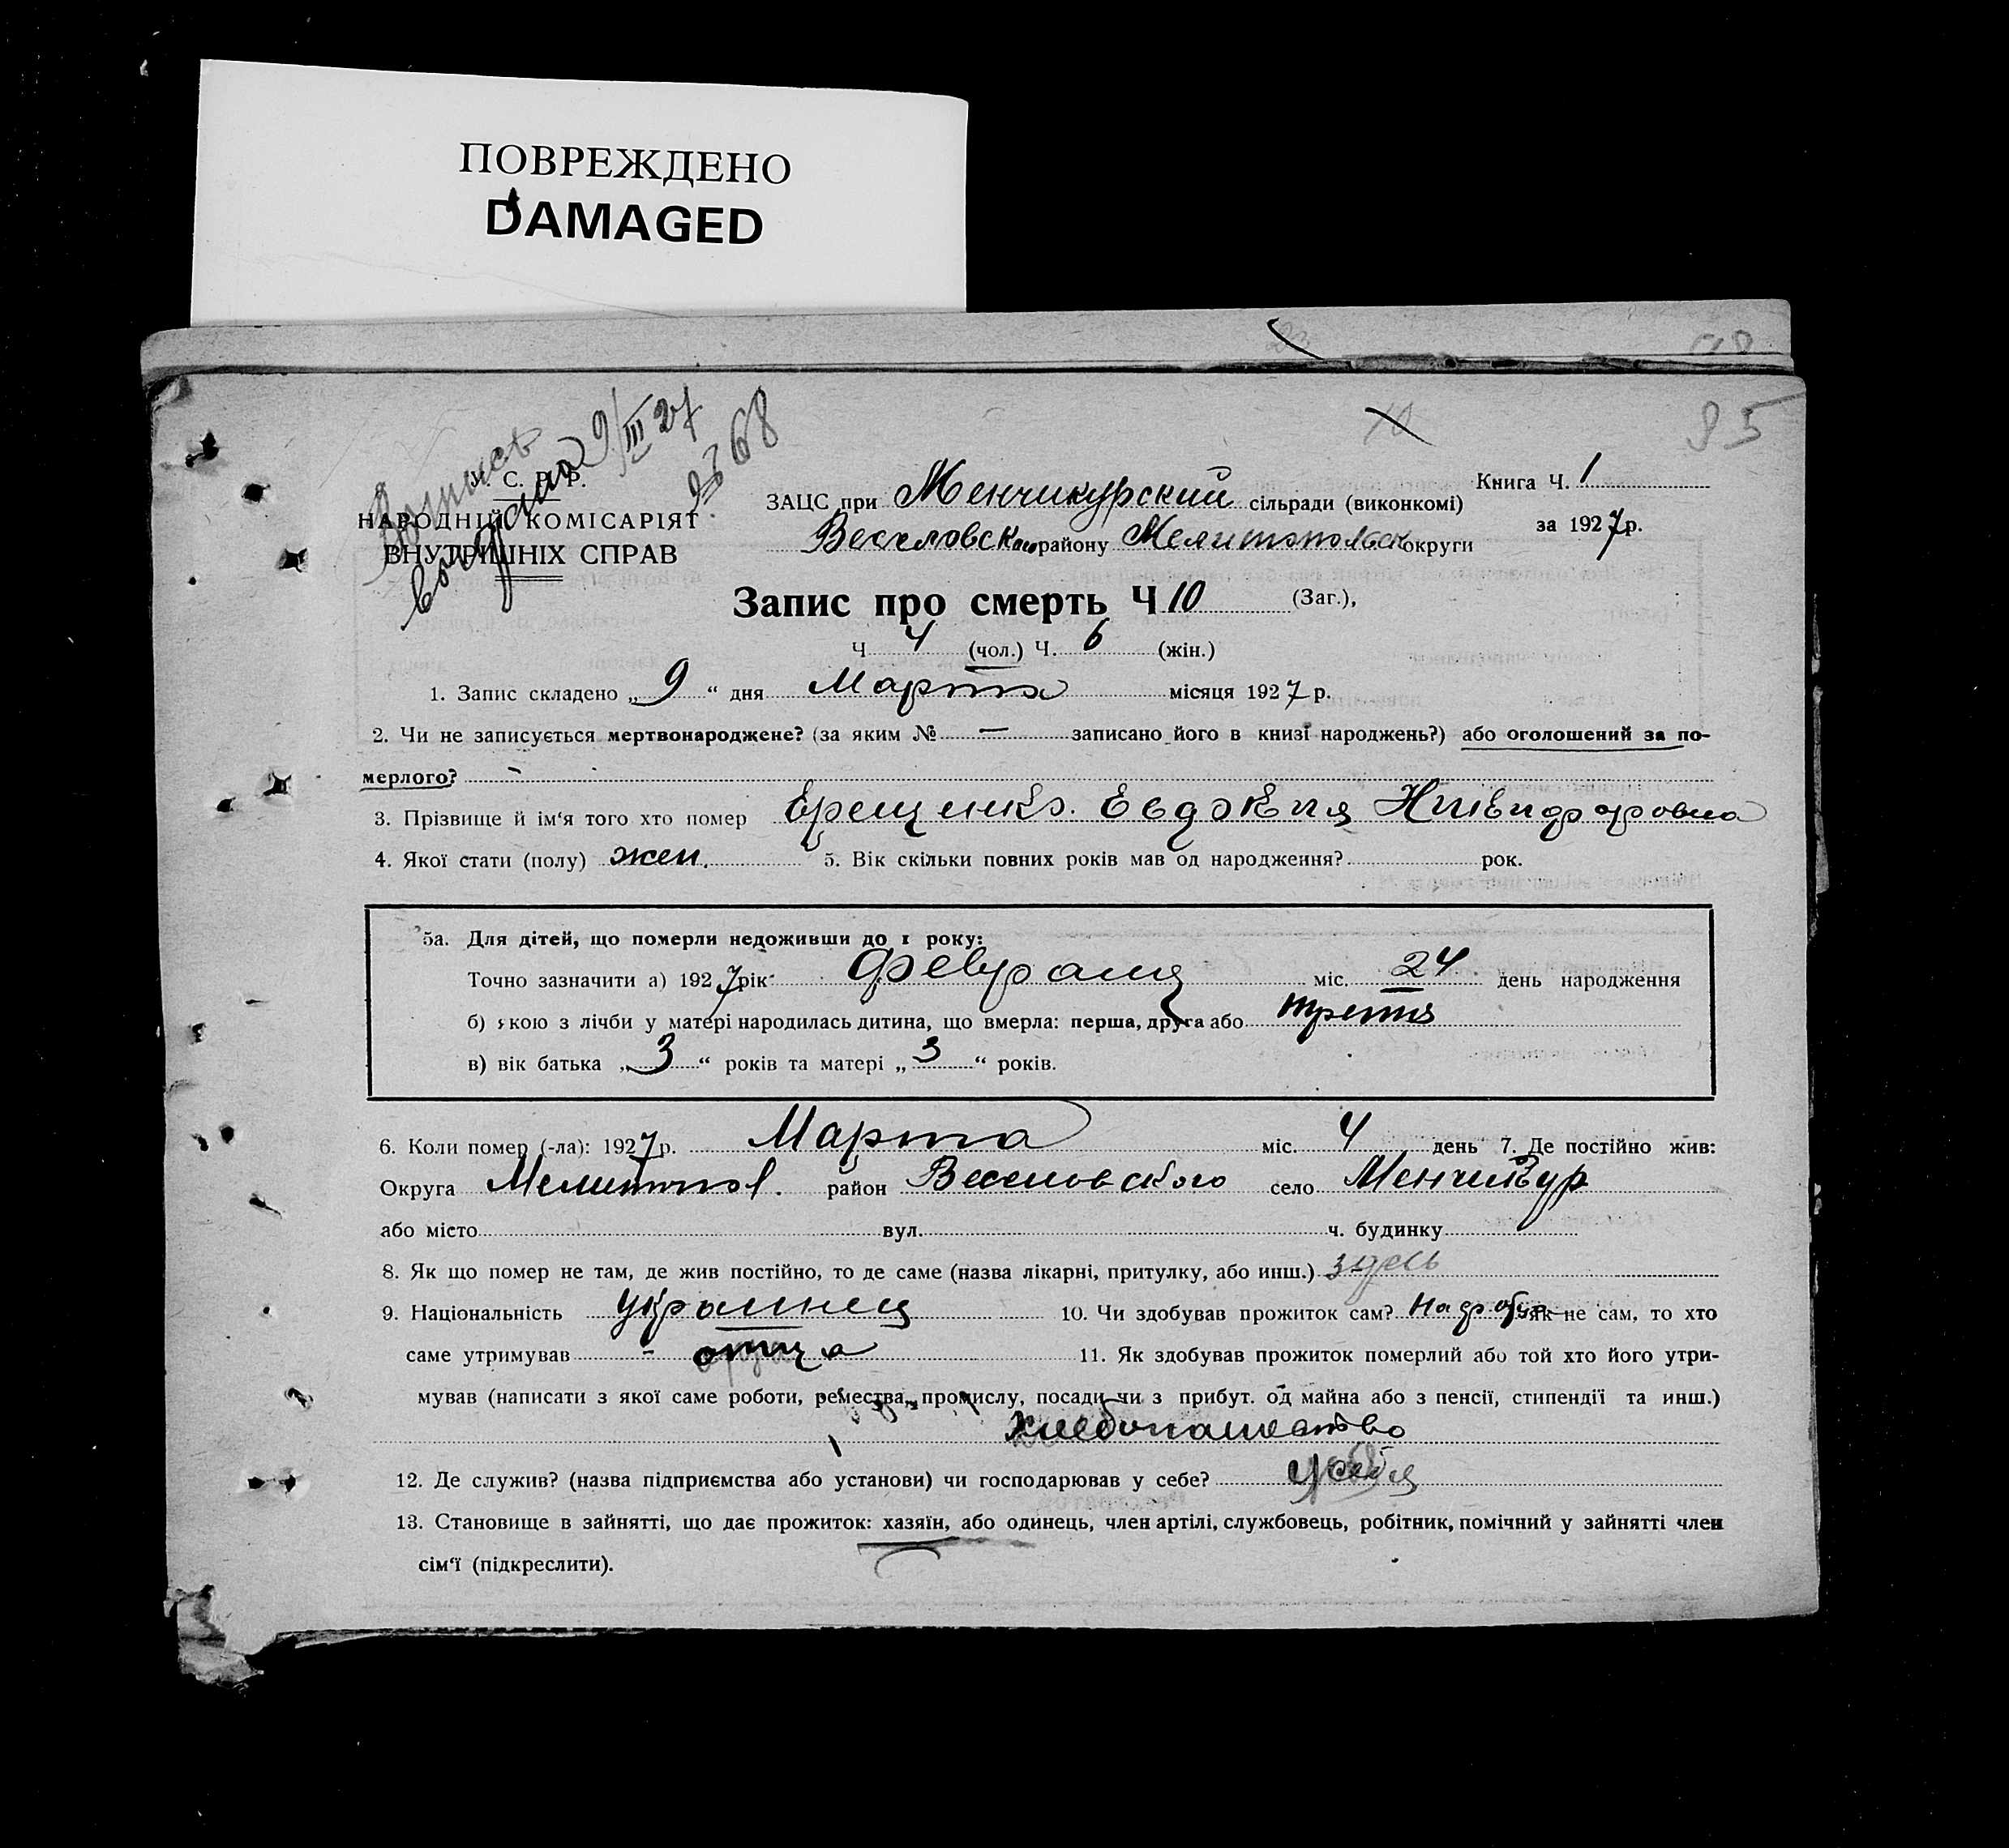 ПОВРЕЖДЕНО
DAMAGED
95
Выпись
выдано 9/III 27
№ 68
У. С. Р. Р.
НАРОДНІЙ КОМІСАРІЯТ
ВНУТРІШНІХ СПРАВ
ЗАЦС при Менчикурский сільради (виконкомі)
Веселовского району Мелитопольск округи
Книга Ч. 1
за 1927 р.
Запис про смерть Ч 10 (Заг.),
Ч 4 (чол.) Ч. 6 (жін.)
1. Запис складено „ 9 “ дня Марта місяця 1927 р.
2. Чи не записується мертвонароджене? (за яким № — записано його в книзі народжень?) або оголошений за по-
мерлого? -
3. Прізвище й ім'я того хто помер Ерещенко. Евдокия Никифоровна
4. Якої стати (полу) жен. 5. Вік скільки повних років мав од народження? рок.
5а. Для дітей, що померли недоживши до 1 року:
Точно зазначити а) 1927 рік Февраля міс. 24 день народження
б) якою з лічби у матері народилась дитина, що вмерла: перша, друга або третя
в) вік батька „ 3 “ років та матері „ 3 “ років.
6. Коли помер (-ла): 1927 р. Марта міс. 4 день 7. Де постійно жив:
Округа Мелитопол. район Веселовского село Менчикур
або місто вул. ч. будинку
8. Як що помер не там, де жив постійно, то де саме (назва лікарні, притулку, або инш.) здесь
9. Національність Украинец 10. Чи здобував прожиток сам? як не сам, то хто
саме утримував - отца 11. Як здобував прожиток померлий або той хто його утри-
мував (написати з якої саме роботи, ремества, промислу, посади чи з прибут. од майна або з пенсії, стипендії та инш.)
хлебопашество
12. Де служив? (назва підприємства або установи) чи господарював у себе? у себя
13. Становище в зайнятті, що дає прожиток: хазяїн, або одинець, член артілі, службовець, робітник, помічний у зайнятті член
сім'ї (підкреслити).